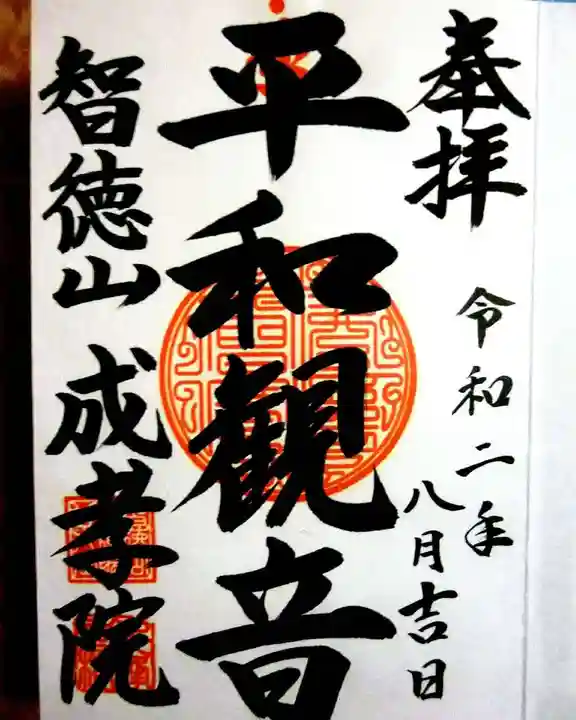 奉拝
令和二年
八月吉日
平和観音
智徳山 成孝院